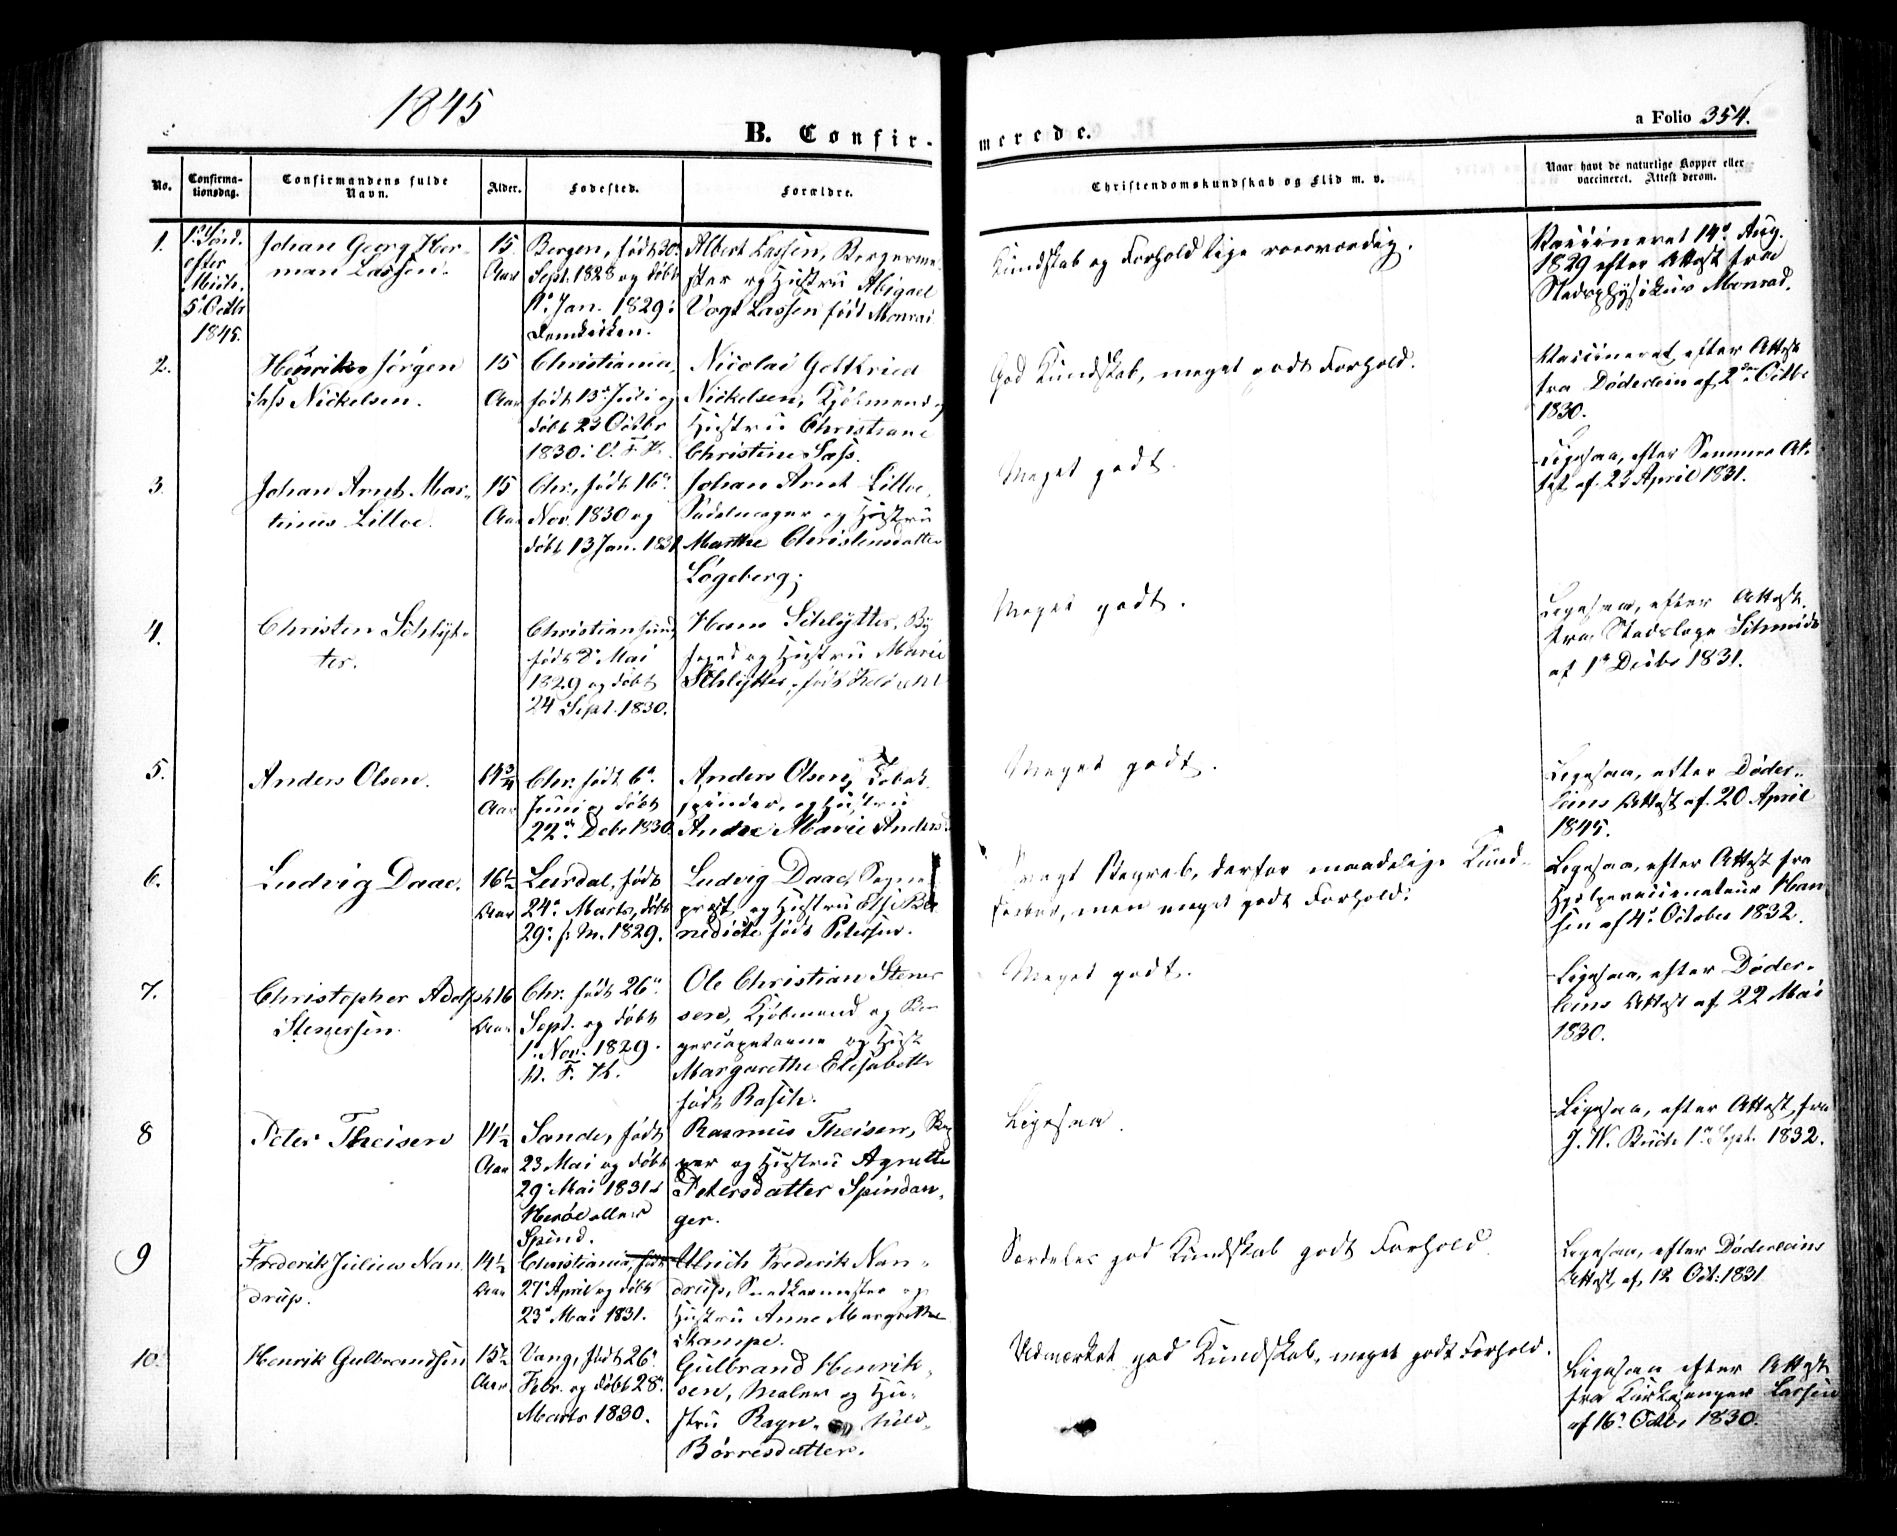 1845
B. Confir-
merede.
a Folio 354.
No.
Confirma-
tionsdag.
Confirmandens fulde
Navn.
Alder.
Fødested.
Forældre.
Christendomskundskab og Flid m. v.
Naar havt de naturlige Kopper eller
vaccineret. Attest derom.
1.
1ste Sønd.
efter
Mich.
5t Octbr
1845.
Johan Georg Her-
man Lassen.
15
Aar
Bergen, født 30.
Sept. 1828 og døbt
11. Jan. 1829 i
Domkirken.
Albert Lassen, Borgerme-
ster og Hustru Abigael
Vogt Lassen født Monrad
Kundskab og Forhold lige roesværdig.
Vaccineret 14d Aug.
1829 efter Attest fra
Stadsphysikus Monrad.
2.
Henrik Jørgen
Sass Nickelsen.
15
Aar
Christiania,
født 15. Juli og
døbt 23 Octbr
1830 i V. F. K.
Nicolai Gottfried
Nickelsen, Kjøbmand og
Hustru Christiane
Christine Sass.
God Kundskab, meget godt Forhold.
Vaccineret, efter Attest
fra Døderlein af 2den Octbr
1830.
3.
Johan Arnt Mar-
tinus Lilloe.
15
Aar
Chr., født 16.
Nov. 1830 og
døbt 13 Jan. 1831
Johan Arnt Lilloe,
Sadelmager og Hustru
Marthe Christensdatter
Løgeberg;
Meget godt.
Ligesaa, efter Sammes At-
test af 23 April 1831.
4.
Christen Schlyt-
ter.
Christiansund,
født 2. Mai
1829 og døbt
24 Sept. 1830.
Hans Schlytter, By
foged og Hustru Marie
Schlytter, født
Meget godt.
Ligesaa, efter Attest
fra Stadslæge Schmidt
af 1d Decbr 1831.
5.
Anders Olsen.
14 3/4
Aar
Chr. født 6d
Juni og døbt
22d Decbr 1830
Anders Olsen, Tobak
spinder, og Hustru
Andrea Marie Anders
Meget godt.
Ligesaa, efter Døder-
leins Attest af 20 April
1845.
6.
Ludvig Daae.
16 1/2
Aar
Leirdal, født
24d Marts, døbt
29. s. M. 1829.
Ludvig Daae, Sogne
præst og Hustru Elsi Be
nedicte født Petersen.
svagt Begreb, derfor maadelige Kund-
skaber, men meget godt Forhold.
Ligesaa, efter Attest fra
Hjelpevaccinateur Han
sen af 4d October 1832.
7.
Christopher Adolph
Stenersen.
16
Aar
Chr. født 26d
Sept. og døbt
1d Nov. 1829.
V. F. K.
Ole Christian Stener
sen, Kjøbmand og Bor
gercapitaine og Hust
Margarethe Elisabeth
født Rasch.
Meget godt.
Ligesaa, efter Døder-
leins Attest af 22 Mai
1830.
8
Peter Theisen
14 1/2
Aar
Sande, født
23 Mai og døbt
29. Mai 1831 i
Herøe eller
Spind.
Rasmus Theisen, Skip
per og Hustru Agnette
Petersdatter Spindan-
ger.
Ligesaa.
Ligesaa, efter Attest fra
J. W. Buch 1d Sept. 1832.
9
Frederik Julius Nan
drup.
14 1/2
Aar
Christiania, født
27d April og døbt
23d Mai 1831.
Ulrich Frederik Nan-
drup, Snedkermester og
Hustru Anne Margrethe
Stampe.
Særdeles god Kundskab godt Forhold.
Ligesaa, efter Døderleins
Attest af 12 Oct: 1831
10.
Henrik Gulbrandsen
15 1/2
Aar.
Vang, født 26d
Febr. og døbt 28d
Marts 1830.
Gulbrand Henrik-
sen, Maler og Hu-
stru Ragn- hild
Børresdatter.
Udmærket god Kundskab, meget godt Forhold.
Ligesaa efter Attest
fra Kirkesanger Larsen
af 16d Octbr 1830.